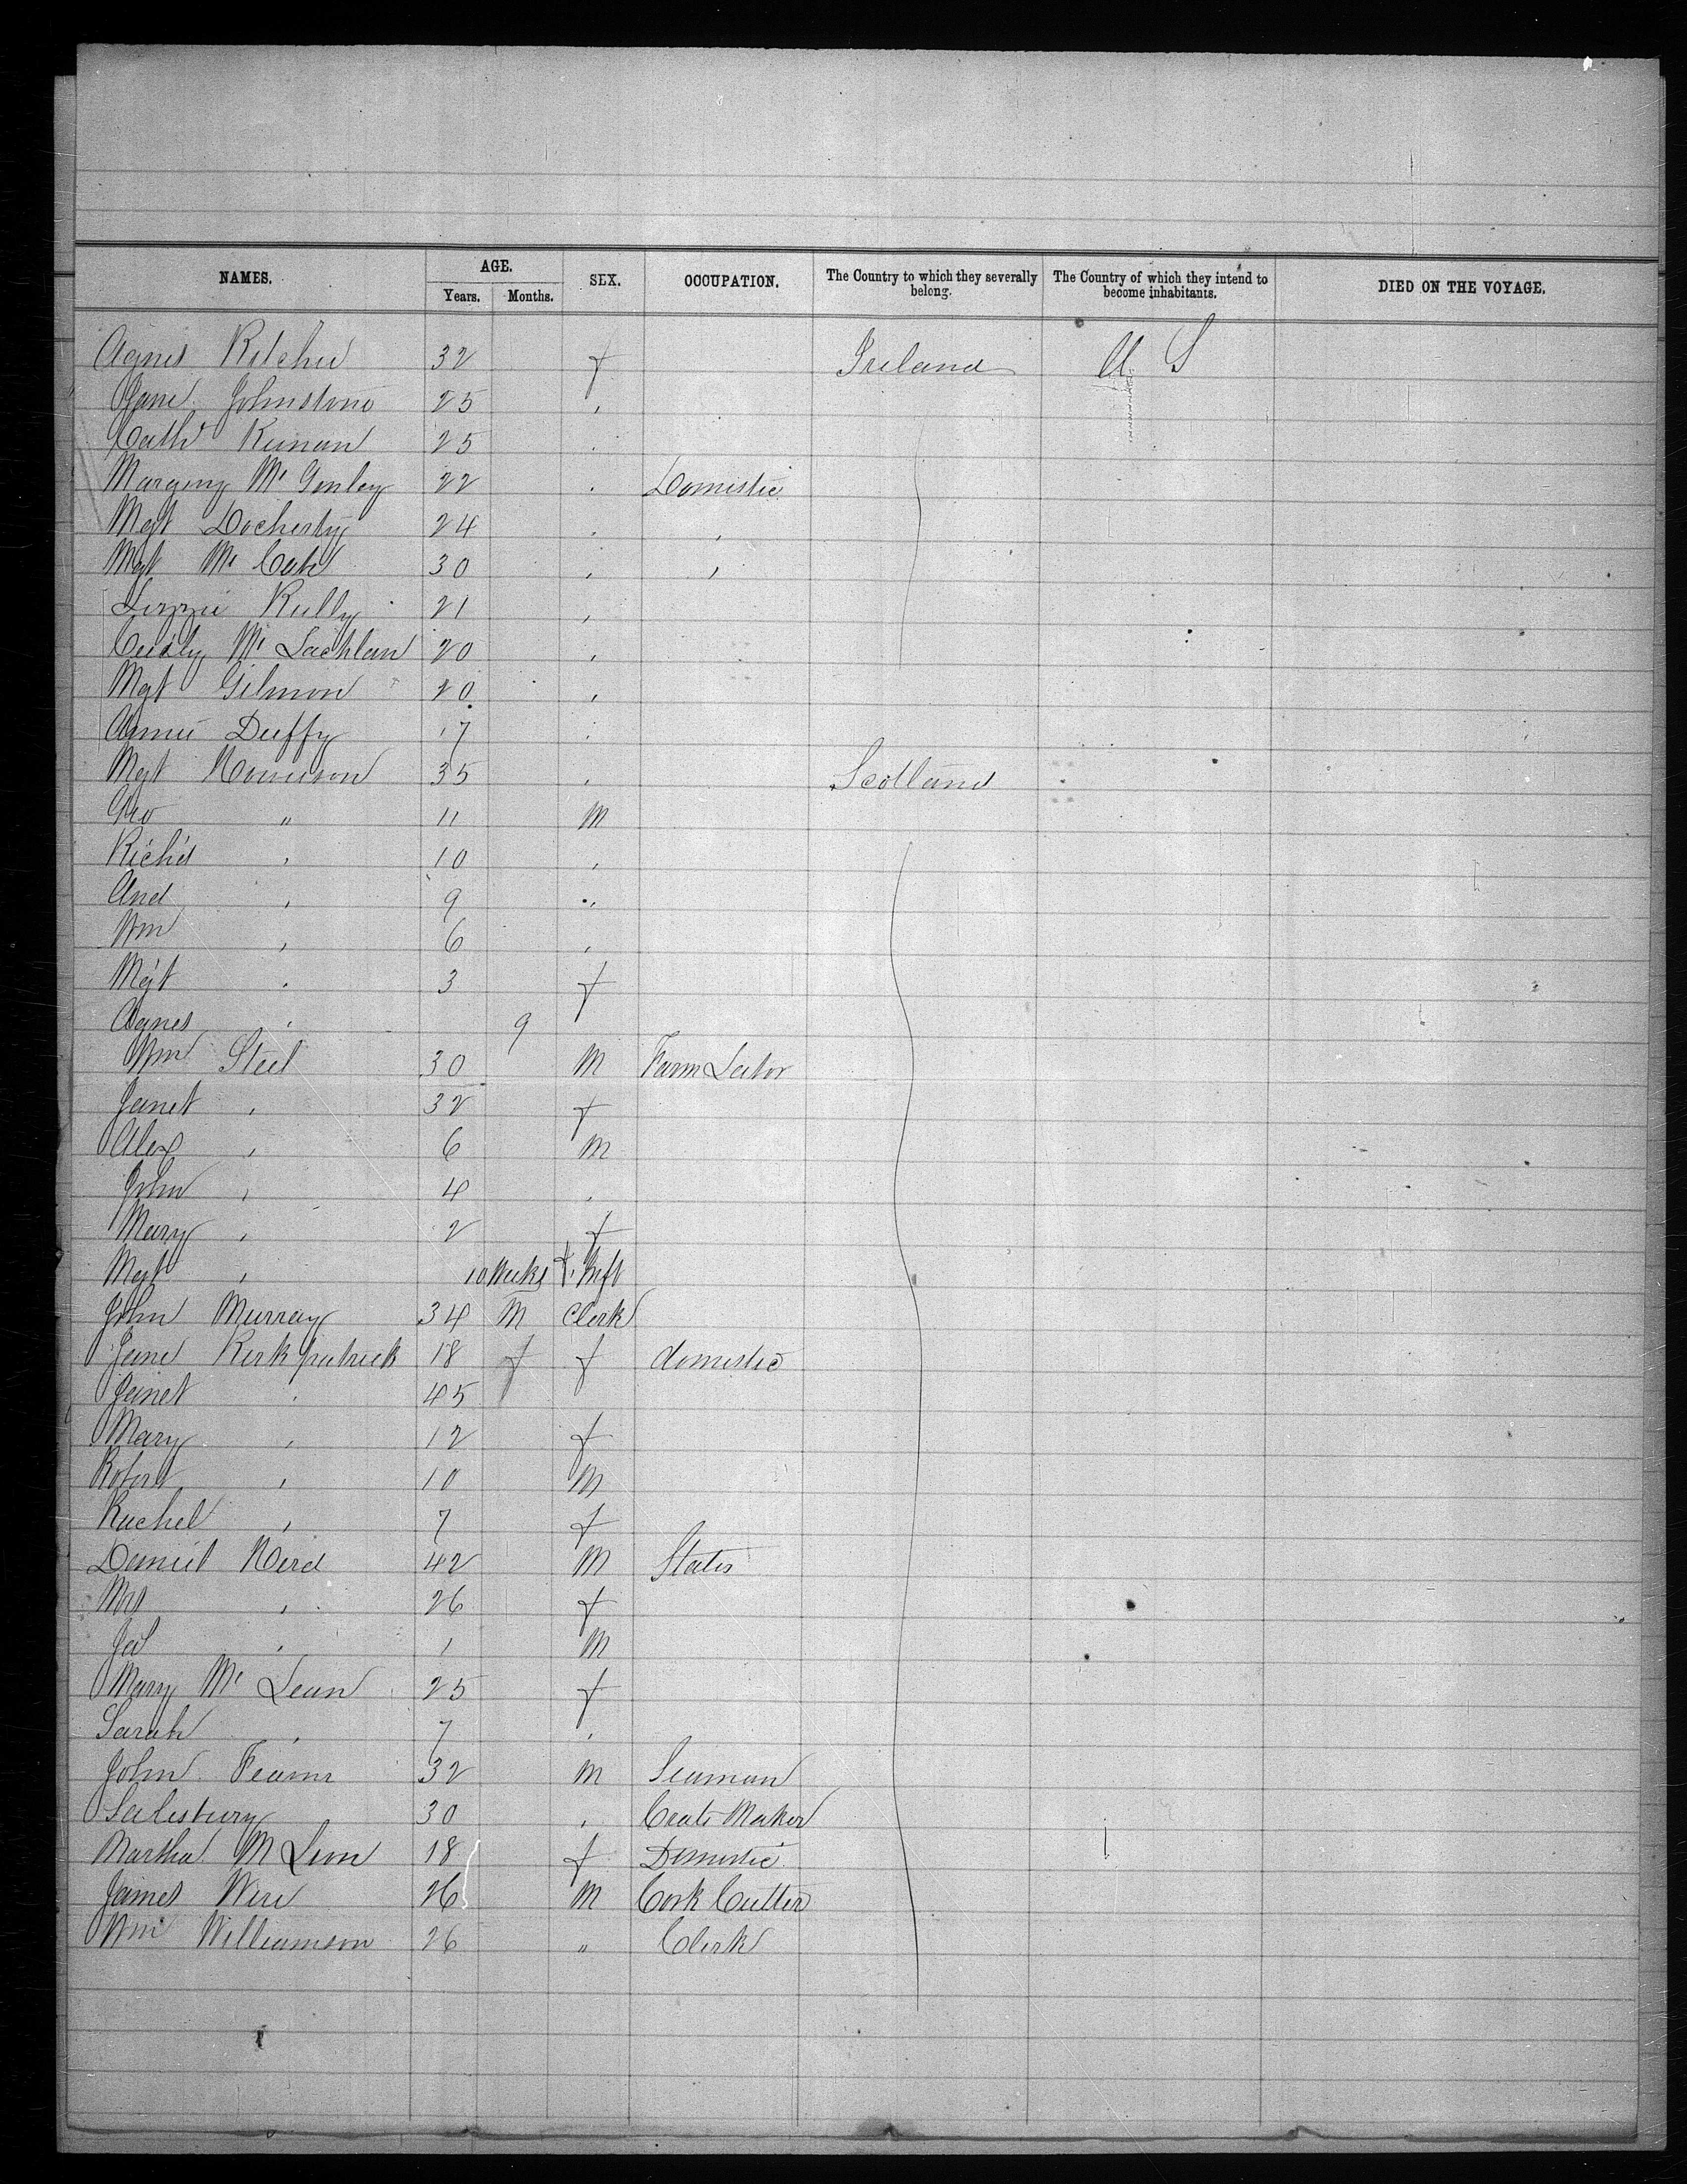 NAMES. AGE. SEX. OCCUPATION. The Country to which they severally belong. The Country of which they intend to become inhabitants. DIED ON THE VOYAGE.
Years. Months.
Agnes Ritchie 32 f Ireland U S
Jane Johnstone 25 ,
Cath Keenan 25 .
Margery Mc Ginley 22 . Domestic
Mgt Docherty 24 . ,
Mgt Mc Cabe 30 , ,
Lizzie Kelly 21 ,
Cecily Mc Lachlan 20 ,
Mgt Gilmore 20 ,
Annie Duffy 17 .
Mgt 35 , Scotland
Geo " 11 M
Richd , 10 ,
And , 9 "
Wm , 6 ,
Mgt . 3 f
Agnes . 9
Wm Steel 30 M Farm Labor
Janet , 32 f
Alex , 6 M
John , 4 .
Mary , 2 f
Mgt , 10 Weeks f. Inft
John Murray 34 M Clerk
Jane Kirkpatrick 18 f f domestic
Janet , 45
Mary , 12 f
Robert , 10 M
Rachel , 7 f
Daniel 42 M Slater
Mrs , 26 f
Jas , 1 M
Mary Mc Lean 25 f
Sarah , 7 .
John 32 M Seaman
Salisbury 30 , Crate Maker
Martha M 18 f Domestic
James Weir 26 M Cork Cutter
Wm Williamson 26 " Clerk